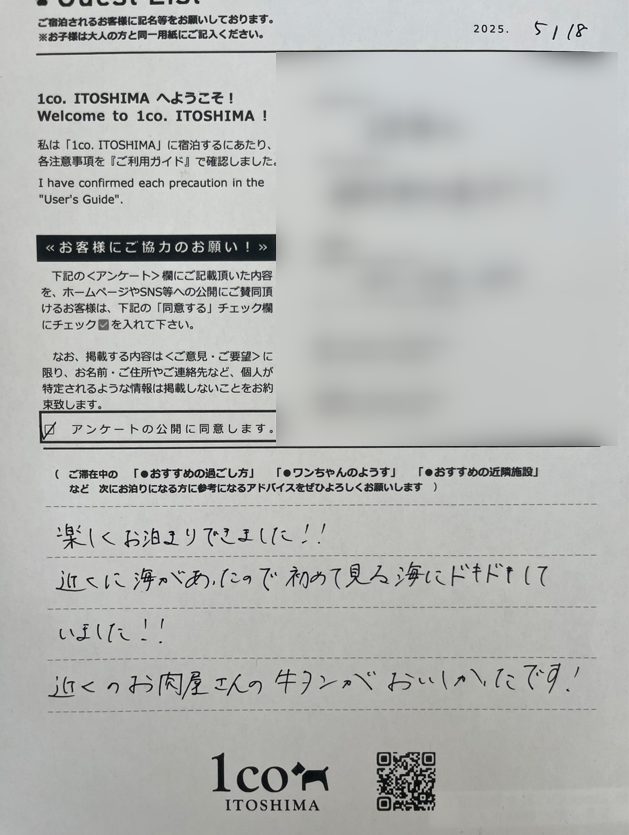 Guest List
ご宿泊されるお客様に記名等をお願いしております。
※お子様は大人の方と同一用紙にご記入ください。
2025. 5/18
1co. ITOSHIMA へようこそ！
Welcome to 1co. ITOSHIMA !
私は「1co. ITOSHIMA」に宿泊するにあたり、
各注意事項を『ご利用ガイド』で確認しました。
I have confirmed each precaution in the
"User's Guide".
≪お客様にご協力のお願い！≫
下記の＜アンケート＞欄にご記載頂いた内容
を、ホームページやSNS等への公開にご賛同頂
けるお客様は、下記の「同意する」チェック欄
にチェック☑を入れて下さい。
なお、掲載する内容は＜ご意見・ご要望＞に
限り、お名前・ご住所やご連絡先など、個人が
特定されるような情報は掲載しないことをお約
束致します。
☑ アンケートの公開に同意します。
（ ご滞在中の 「●おすすめの過ごし方」 「●ワンちゃんのようす」 「●おすすめの近隣施設」
など 次にお泊りになる方に参考になるアドバイスをぜひよろしくお願いします ）
楽しくお泊まりできました!!
近くに海があったので初めて見る海にドキドキして
いました!!
近くのお肉屋さんの牛タンがおいしかったです!
1co
ITOSHIMA